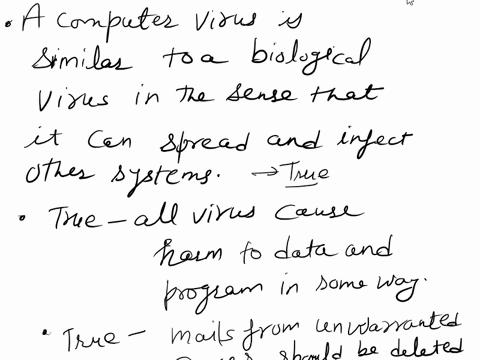 • A computer virus is
similar to a biological
virus in the sense that
it can spread and infect
other systems. → True
• True - all virus cause
harm to data and
program in some way.
• True - mails from unwarranted
should be deleted